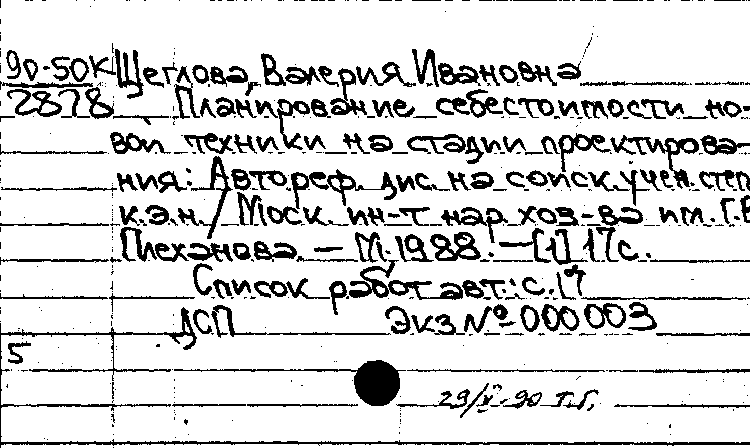 90-50К Щеглова, Валерия Ивановна
2878 Планирование себестоимости но-
вой техники на стадии проектирова-
ния: Автореф. дис. на соиск. учен. степ.
к.э.н. / Моск. ин-т нар. хоз-ва им. Г.В
Плеханова. — М. 1988. — [1] 17 с.
Список работ авт.: с. 17
ДСП Экз № 000003
5
29/V-90 Т.Г.